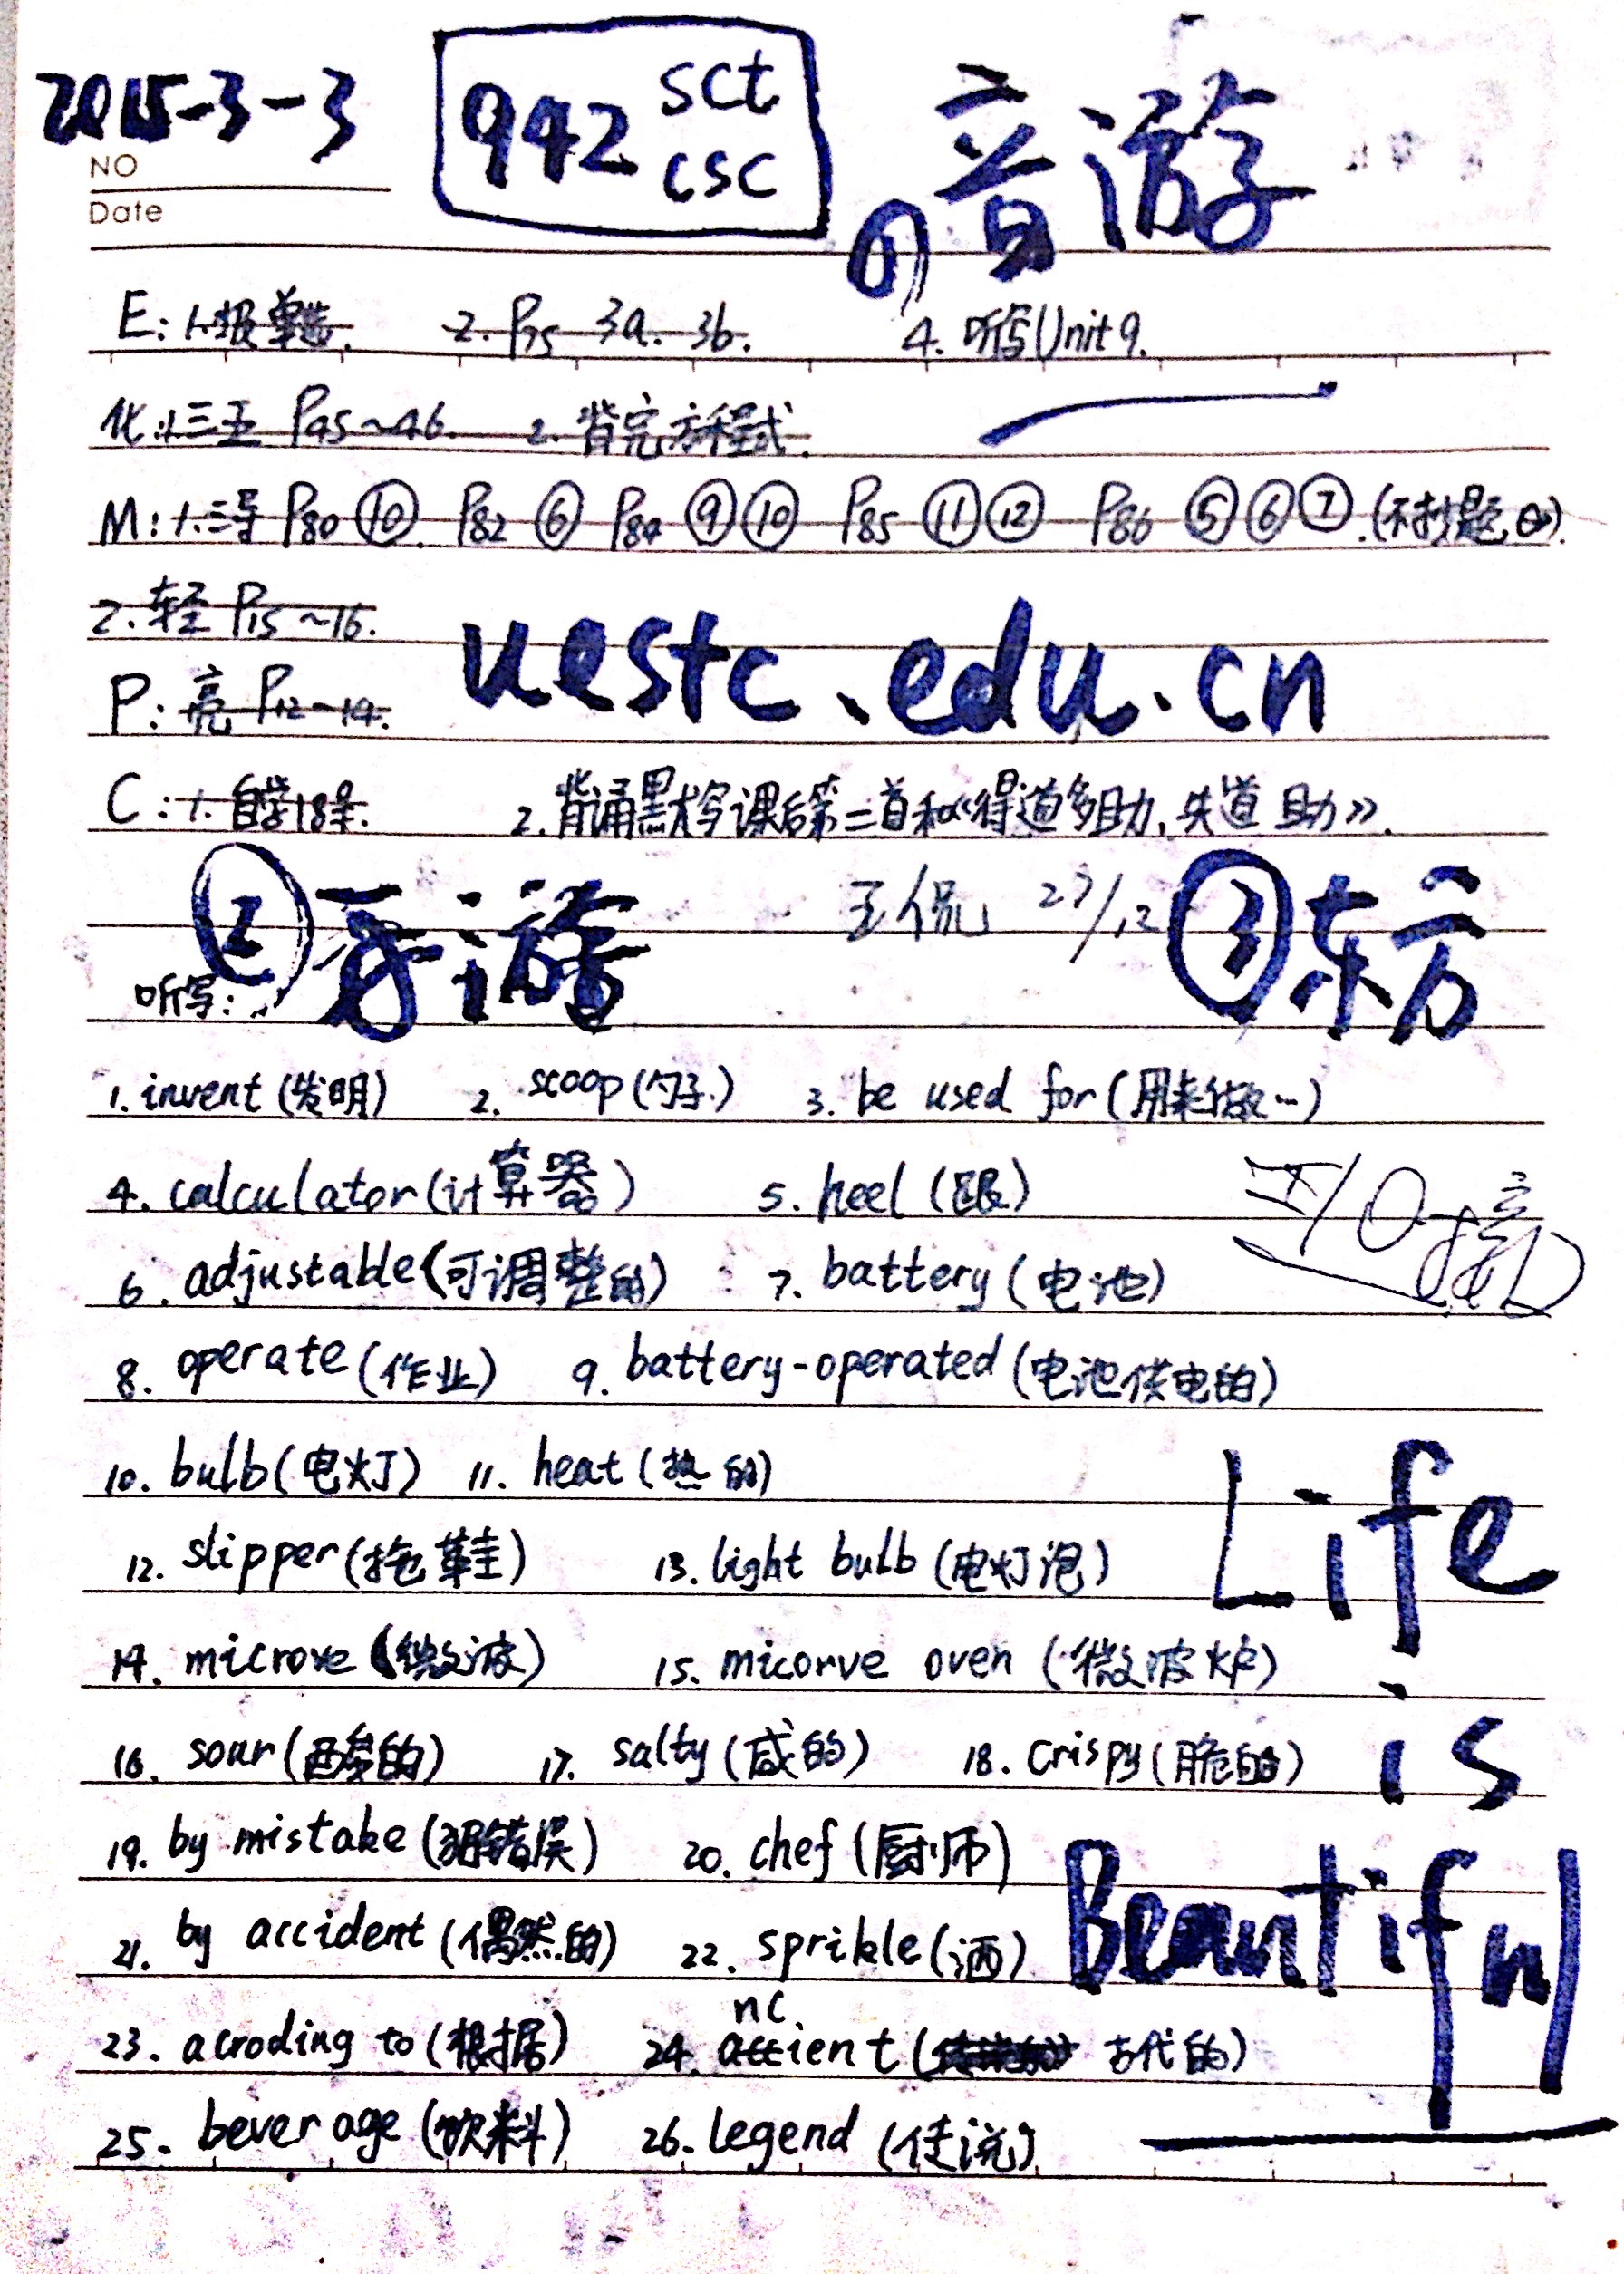 2015-3-3
942 sct csc
① 音游
NO
Date
E: 1.报单选. 2. P75 3a. 3b. 4. 听写Unit 9.
化:1.三五 P45~46. 2. 背完方程式.
M: 1.导 P80 ⑩. P82 ⑥ P84 ⑨⑩ P85 ⑪⑫ P86 ⑤⑥⑦.(不抄题目).
2. 轻 P15~16.
uestc.edu.cn
P: 亮 P12~14.
C: 1. 自学18课. 2. 背诵默写课后第二首和《得道多助,失道 助》.
② 音游 27/12 ③ 东方
听写:
1. invent (发明) 2. scoop (勺子) 3. be used for (用来做…)
4. calculator (计算器) 5. heel (跟)
I/O接口
6. adjustable (可调整的) 7. battery (电池)
8. operate (作业) 9. battery-operated (电池供电的)
10. bulb (电灯) 11. heat (热的)
Life
12. slipper (拖鞋) 13. light bulb (电灯泡)
14. microve (微波) 15. micorve oven (微波炉)
is
16. sour (酸的) 17. salty (咸的) 18. crispy (脆的)
19. by mistake (错误) 20. chef (厨师)
Beautiful
21. by accident (偶然的) 22. sprikle (洒)
23. acroding to (根据) 24. ancient (古代的)
25. beverage (饮料) 26. legend (传说)